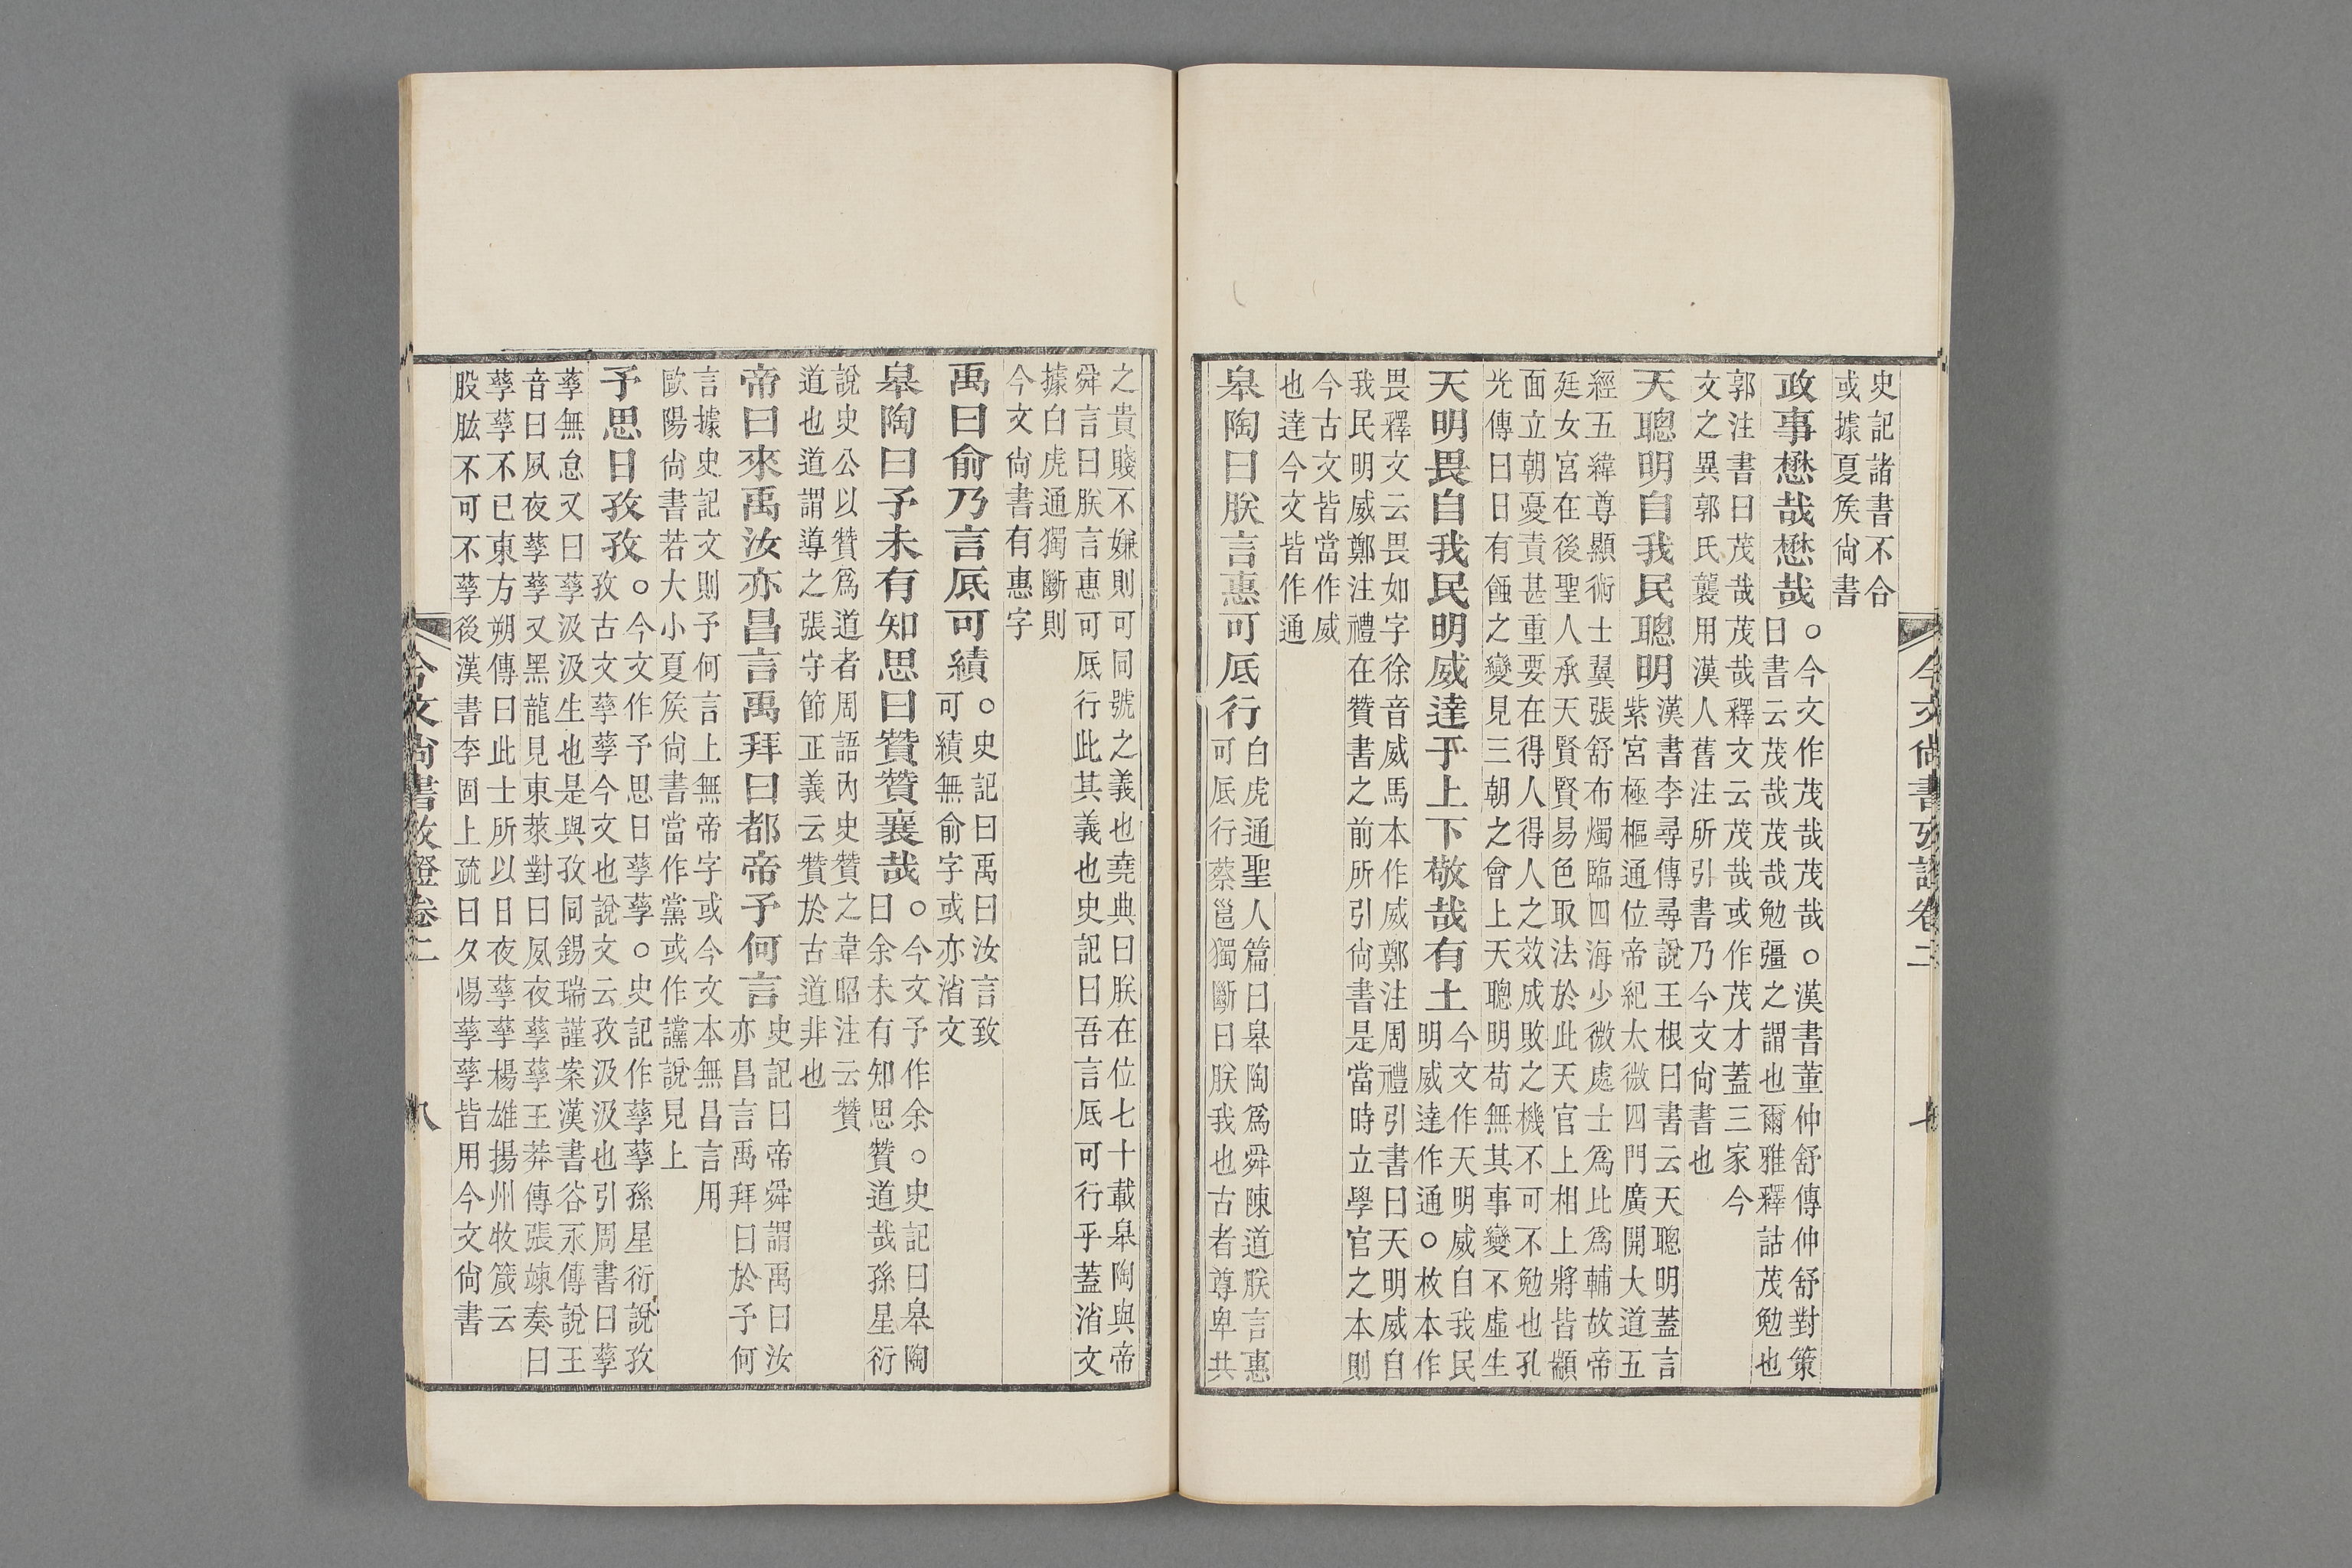 今文尙書攷證卷二
七
史記諸書不合
或據夏矦尙書
政事懋哉懋哉
○今文作茂哉茂哉○漢書董仲舒傳仲舒對策
曰書云茂哉茂哉勉彊之謂也爾雅釋詁茂勉也
郭注書曰茂哉茂哉釋文云茂哉或作茂才蓋三家今
文之異郭氏襲用漢人舊注所引書乃今文尙書也
天聰明自我民聰明
漢書李尋傳尋說王根曰書云天聰明蓋言
紫宮極樞通位帝紀太微四門廣開大道五
經五緯尊顯術士翼張舒布燭臨四海少微處士爲比爲輔故帝
廷女宮在後聖人承天賢賢易色取法於此天官上相上將皆顓
面立朝憂責甚重要在得人得人之效成敗之機不可不勉也孔
光傳曰日有蝕之變見三朝之會上天聰明苟無其事變不虛生
天明畏自我民明威達于上下敬哉有土
今文作天明威自我民
明威達作通○枚本作
畏釋文云畏如字徐音威馬本作威鄭注周禮引書曰天明威自
我民明威鄭注禮在贊書之前所引尙書是當時立學官之本則
今古文皆當作威
也達今文皆作通
皋陶曰朕言惠可厎行
白虎通聖人篇曰皋陶爲舜陳道朕言惠
可厎行蔡邕獨斷曰朕我也古者尊卑共
之貴賤不嫌則可同號之義也堯典曰朕在位七十載皋陶與帝
舜言曰朕言惠可厎行此其義也史記曰吾言厎可行乎蓋渻文
據白虎通獨斷則
今文尙書有惠字
禹曰俞乃言厎可績
○史記曰禹曰汝言致
可績無俞字或亦渻文
皋陶曰予未有知思曰贊贊襄哉
○今文予作余○史記曰皋陶
曰余未有知思贊道哉孫星衍
說史公以贊爲道者周語內史贊之韋昭注云贊
道也道謂導之張守節正義云贊於古道非也
帝曰來禹汝亦昌言禹拜曰都帝予何言
史記曰帝舜謂禹曰汝
亦昌言禹拜曰於予何
言據史記文則予何言上無帝字或今文本無昌言用
歐陽尙書若大小夏矦尙書當作黨或作讜說見上
予思日孜孜
○今文作予思日孳孳○史記作孳孳孫星衍說孜
孜古文孳孳今文也說文云孜汲汲也引周書曰孳
孳無怠又曰孳汲汲生也是與孜同錫瑞謹案漢書谷永傳說王
音曰夙夜孳孳又黑龍見東萊對曰夙夜孳孳王莽傳張竦奏曰
孳孳不已東方朔傳曰此士所以日夜孳孳楊雄揚州牧箴云
股肱不可不孳後漢書李固上疏曰夕惕孳孳皆用今文尙書
今文尙書攷證卷二
八